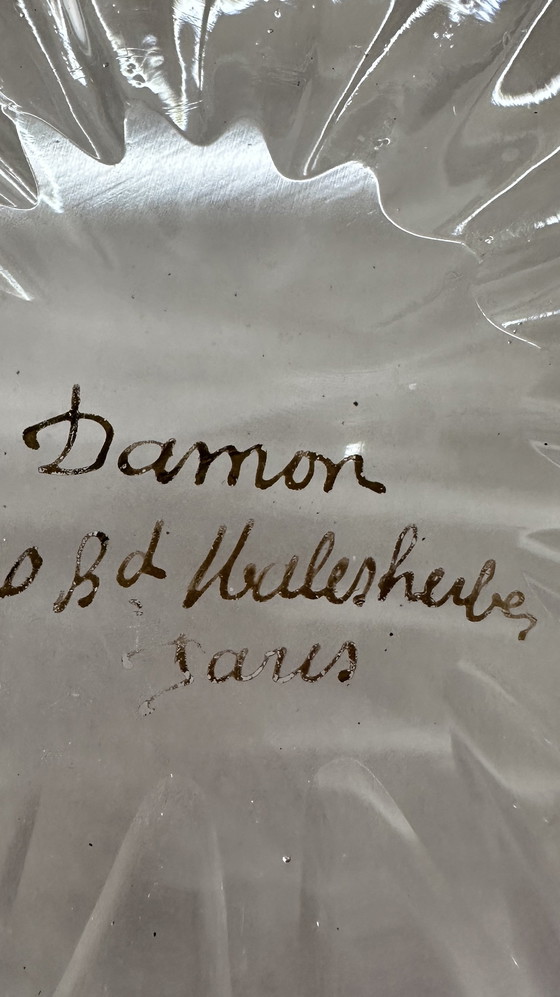 Damon
0 Bd Malesherbes
Paris